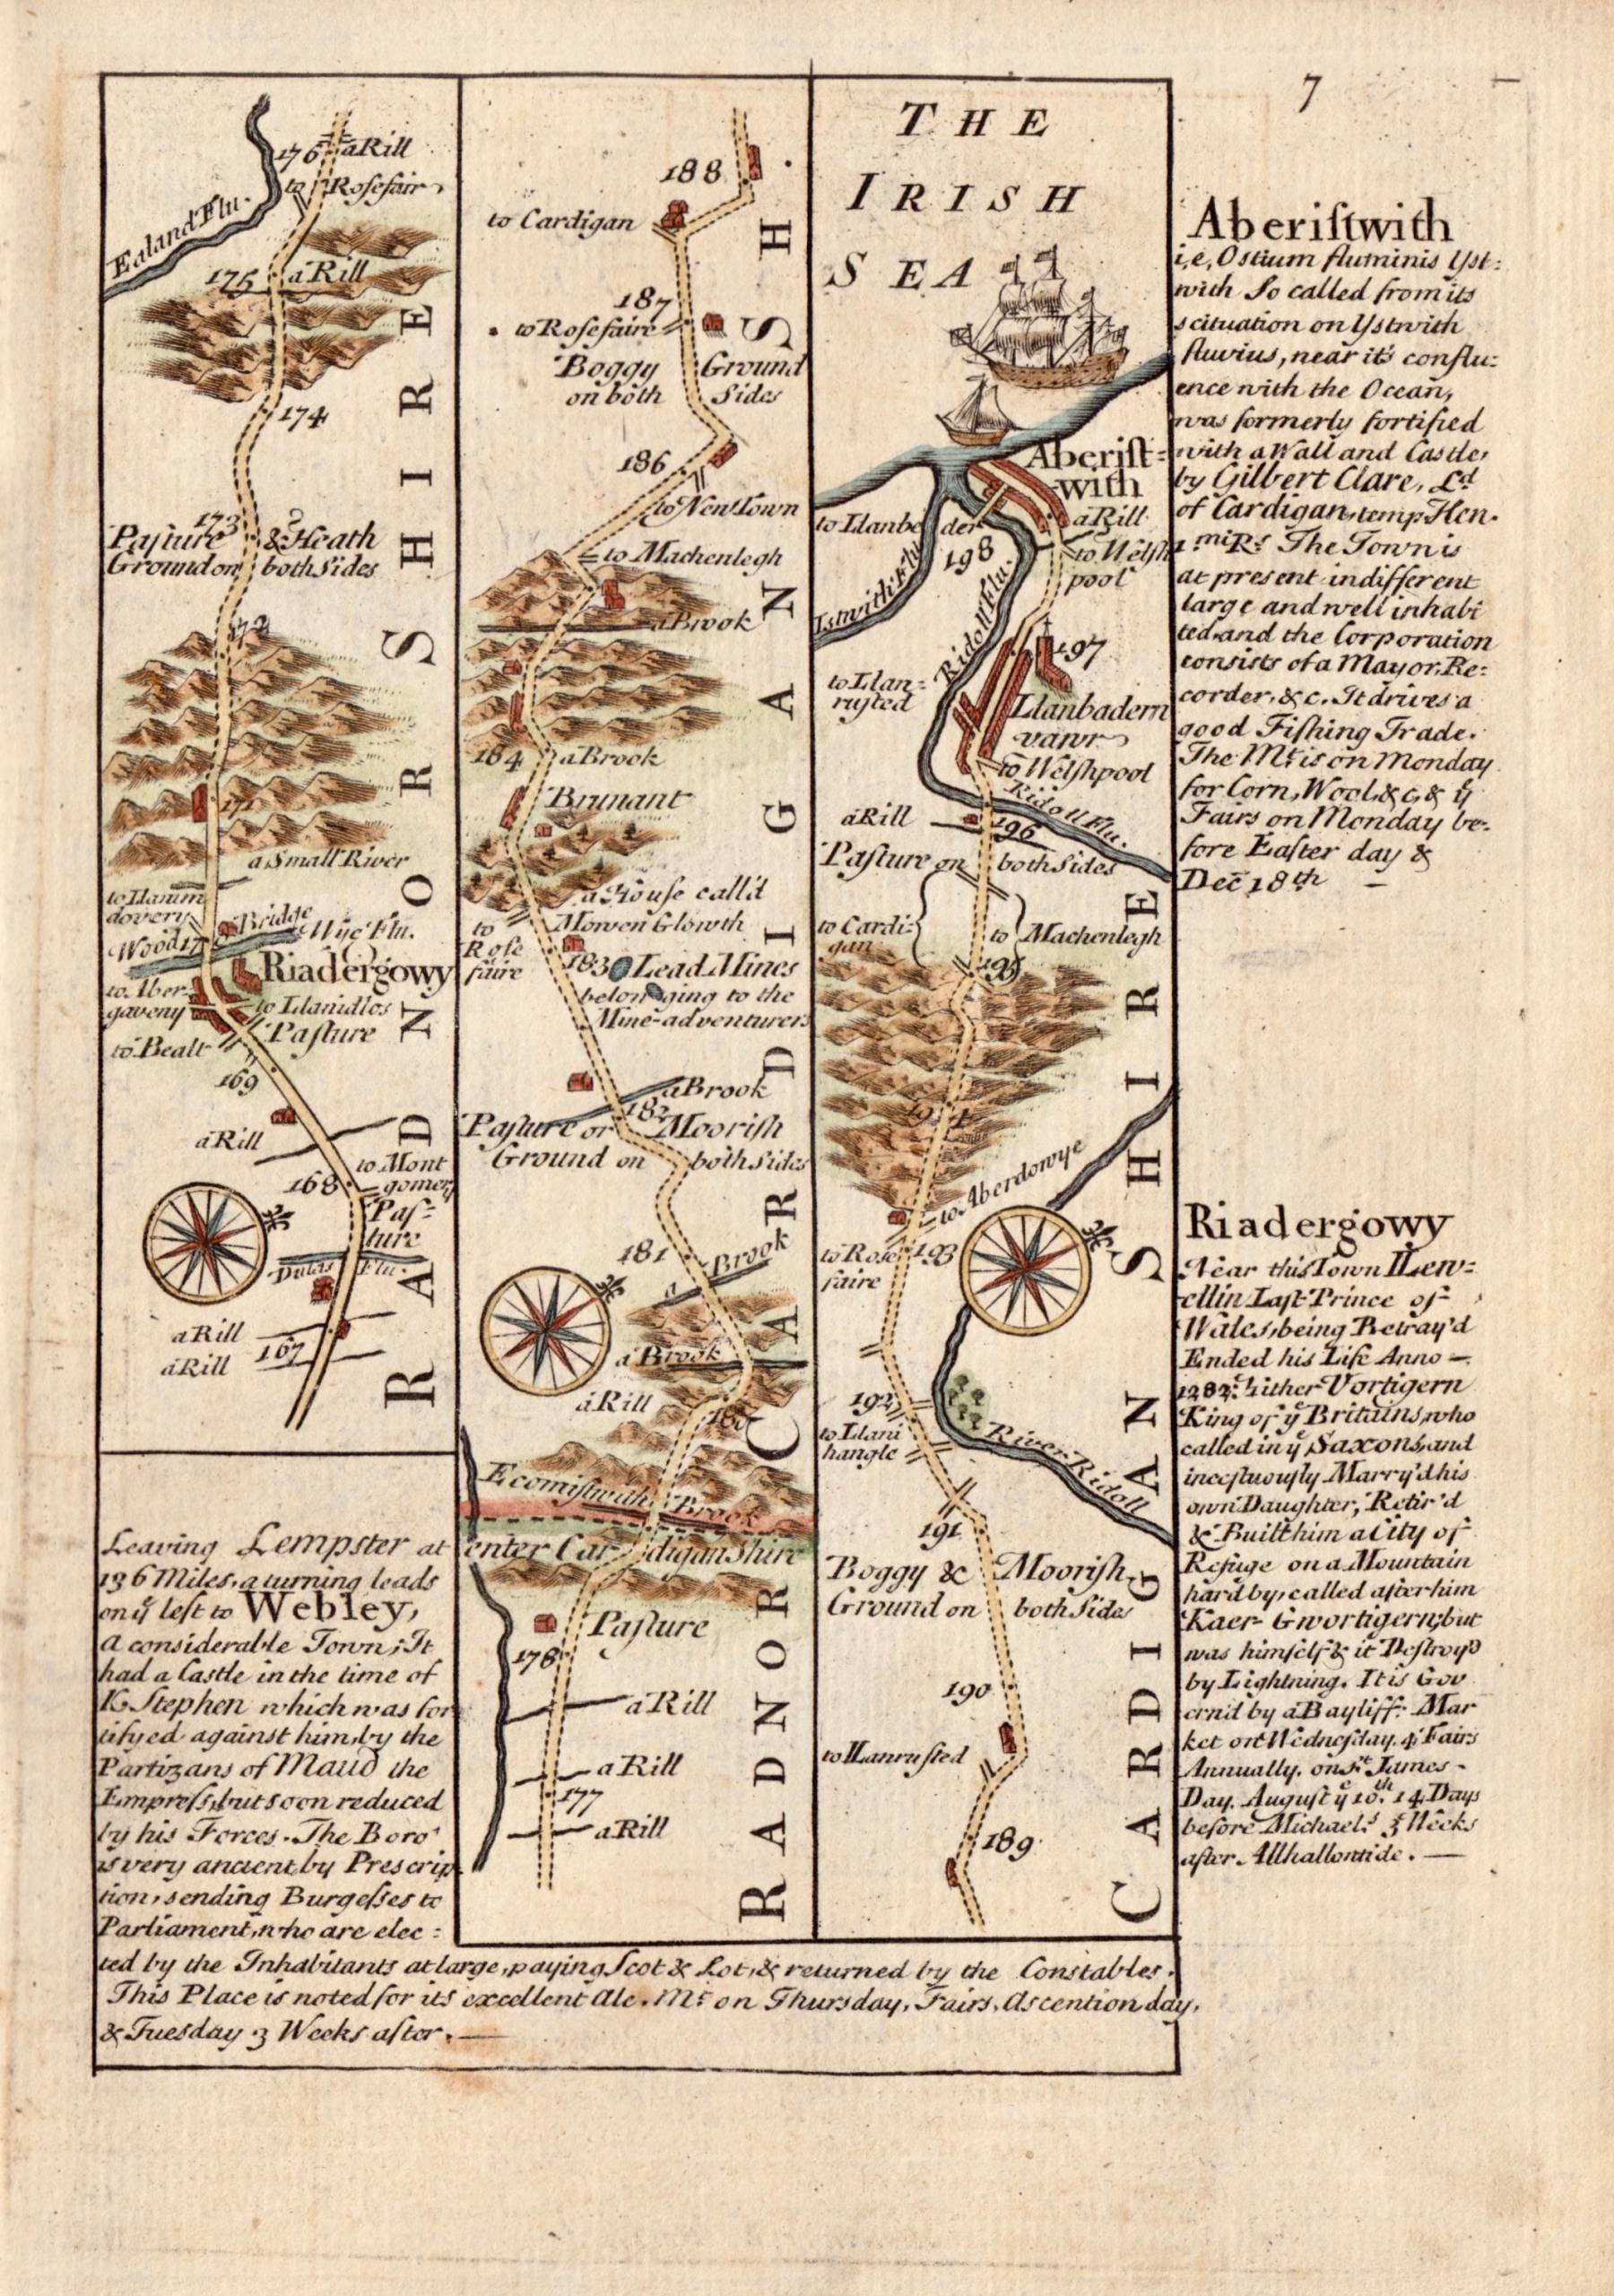 7
176 a Rill
to Rosefair
Ealand Flu.
175 a Rill
174
173
Pasture & Heath
Ground on both Sides
172
171
a Small River
to Llanim
dovery
Bridge
Wye Flu.
Wood
Riadergowy
to Aber
gaveny
to Llanidlos
Pasture
to Bealt
169
a Rill
to Mont
gomery
168
Pas=
ture
Dulas Flu.
a Rill
a Rill
167
RADNORSHIRE
Leaving Lempster at
136 Miles, a turning leads
on yͤ left to Webley,
a considerable Town; It
had a Castle in the time of
K Stephen which was for
tifyed against him, by the
Partizans of Maud the
Empress, but soon reduced
by his Forces. The Boro'
is very ancient by Prescrip
tion, sending Burgesses to
Parliament, who are elec=
ted by the Inhabitants at large, paying Scot & Lot, & returned by the Constables.
This Place is noted for its excellent Ale. Mᵗ on Thursday, Fairs, Ascention day,
& Tuesday 3 Weeks after.
188
to Cardigan
187
to Rosefaire
Boggy Ground
on both Sides
186
to New Town
to Machenlegh
a Brook
184 a Brook
Brunant
a House call'd
Mowen Glowth
to
Rose
faire
183 Lead Mines
belonging to the
Mine-adventurers
a Brook
182
Pasture or Moorish
Ground on both Sides
181
a Brook
a Brook
a Rill
180
Ecomistwith Brook
enter Cardiganshire
Pasture
178
a Rill
a Rill
177
a Rill
CARDIGANSH.
RADNOR
THE
IRISH
SEA
Aberist=
with
to Llanbeder
a Rill
198
to Welsh
pool
Istwith Flu
Ridoll Flu.
197
to Llan=
rusted
Llanbadern
vawr
to Welshpool
Ridoll Flu.
a Rill
196
Pasture on both Sides
to Cardi=
gan
to Machenlegh
195
194
to Aberdowye
to Rose
faire
193
192
to Llani
hangle
River Ridoll
191
Boggy & Moorish
Ground on both Sides
190
to Llanrusted
189
CARDIGANSHIRE
Aberistwith
i,e, Ostium fluminis Yst=
with So called from its
scituation on Ystwith
fluvius, near it's conflu=
ence with the Ocean,
was formerly fortified
with a Wall and Castle,
by Gilbert Clare, Lᵈ
of Cardigan, temp Hen.
1ᵐⁱ Rˢ The Town is
at present indifferent
large and well inhabi
ted, and the Corporation
consists of a Mayor, Re=
corder, &c. It drives a
good Fishing Trade.
The Mᵗ is on Monday
for Corn, Wool, &c, & yͤ
Fairs on Monday be=
fore Easter day &
Dec 18ᵗʰ
Riadergowy
Near this Town Llew=
ellin Last Prince of
Wales, being Betray'd
Ended his Life Anno
1282. hither Vortigern
King of yͤ Britains, who
called in yͤ Saxons, and
incestuously Marry'd his
own Daughter, Retir'd
& Built him a City of
Refuge on a Mountain
hard by, called after him
Kaer Gwortigern; but
was himself & it Destroy'd
by Lightning. It is Gov
ern'd by a Bayliff. Mar
ket on Wednesday, 4 Fairs
Annually. on Sᵗ James
Day, August yͤ 10ᵗʰ. 14 Days
before Michaelˢ 3 Weeks
after Allhallontide.